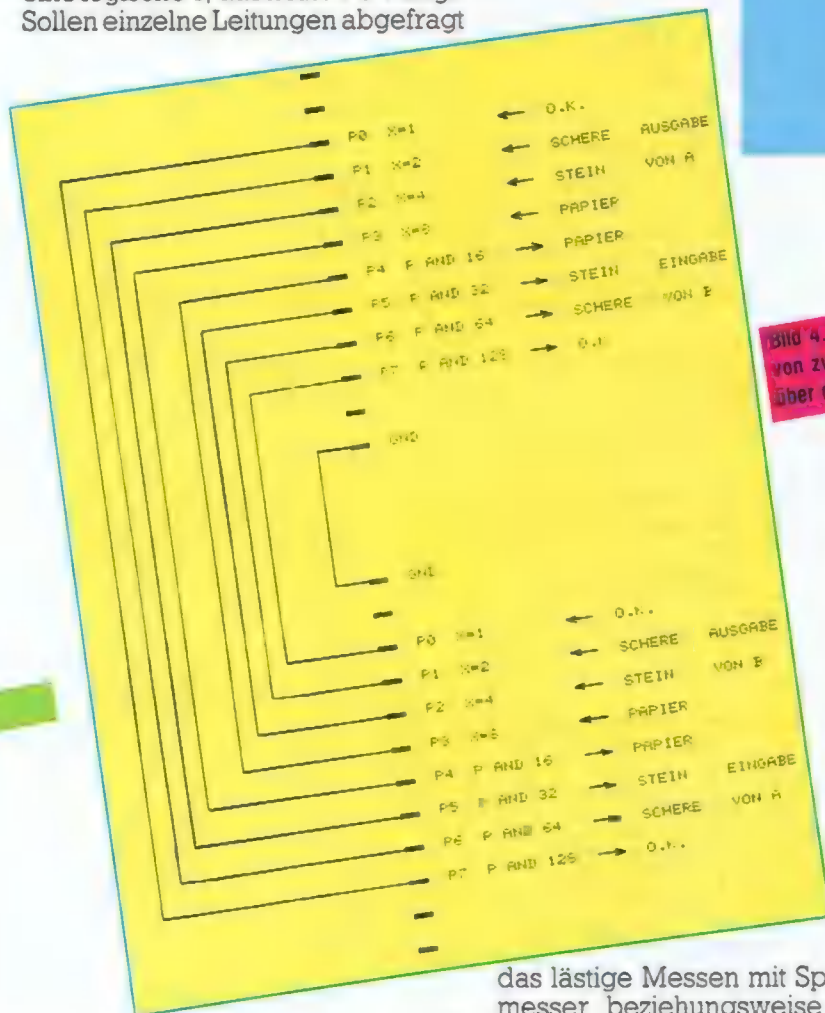 Sollen einzelne Leitungen abgefragt
P0 X=1 ← O.K.
P1 X=2 ← SCHERE AUSGABE
P2 X=4 ← STEIN VON A
P3 X=8 ← PAPIER
P4 P AND 16 → PAPIER
P5 P AND 32 → STEIN EINGABE
P6 P AND 64 → SCHERE VON B
P7 P AND 128 → O.K.
GND
GND
P0 X=1 ← O.K.
P1 X=2 ← SCHERE AUSGABE
P2 X=4 ← STEIN VON B
P3 X=8 ← PAPIER
P4 P AND 16 → PAPIER
P5 P AND 32 → STEIN EINGABE
P6 P AND 64 → SCHERE VON A
P7 P AND 128 → O.K.
Bild 4.
von zw
über
das lästige Messen mit Sp
messer beziehungsweise